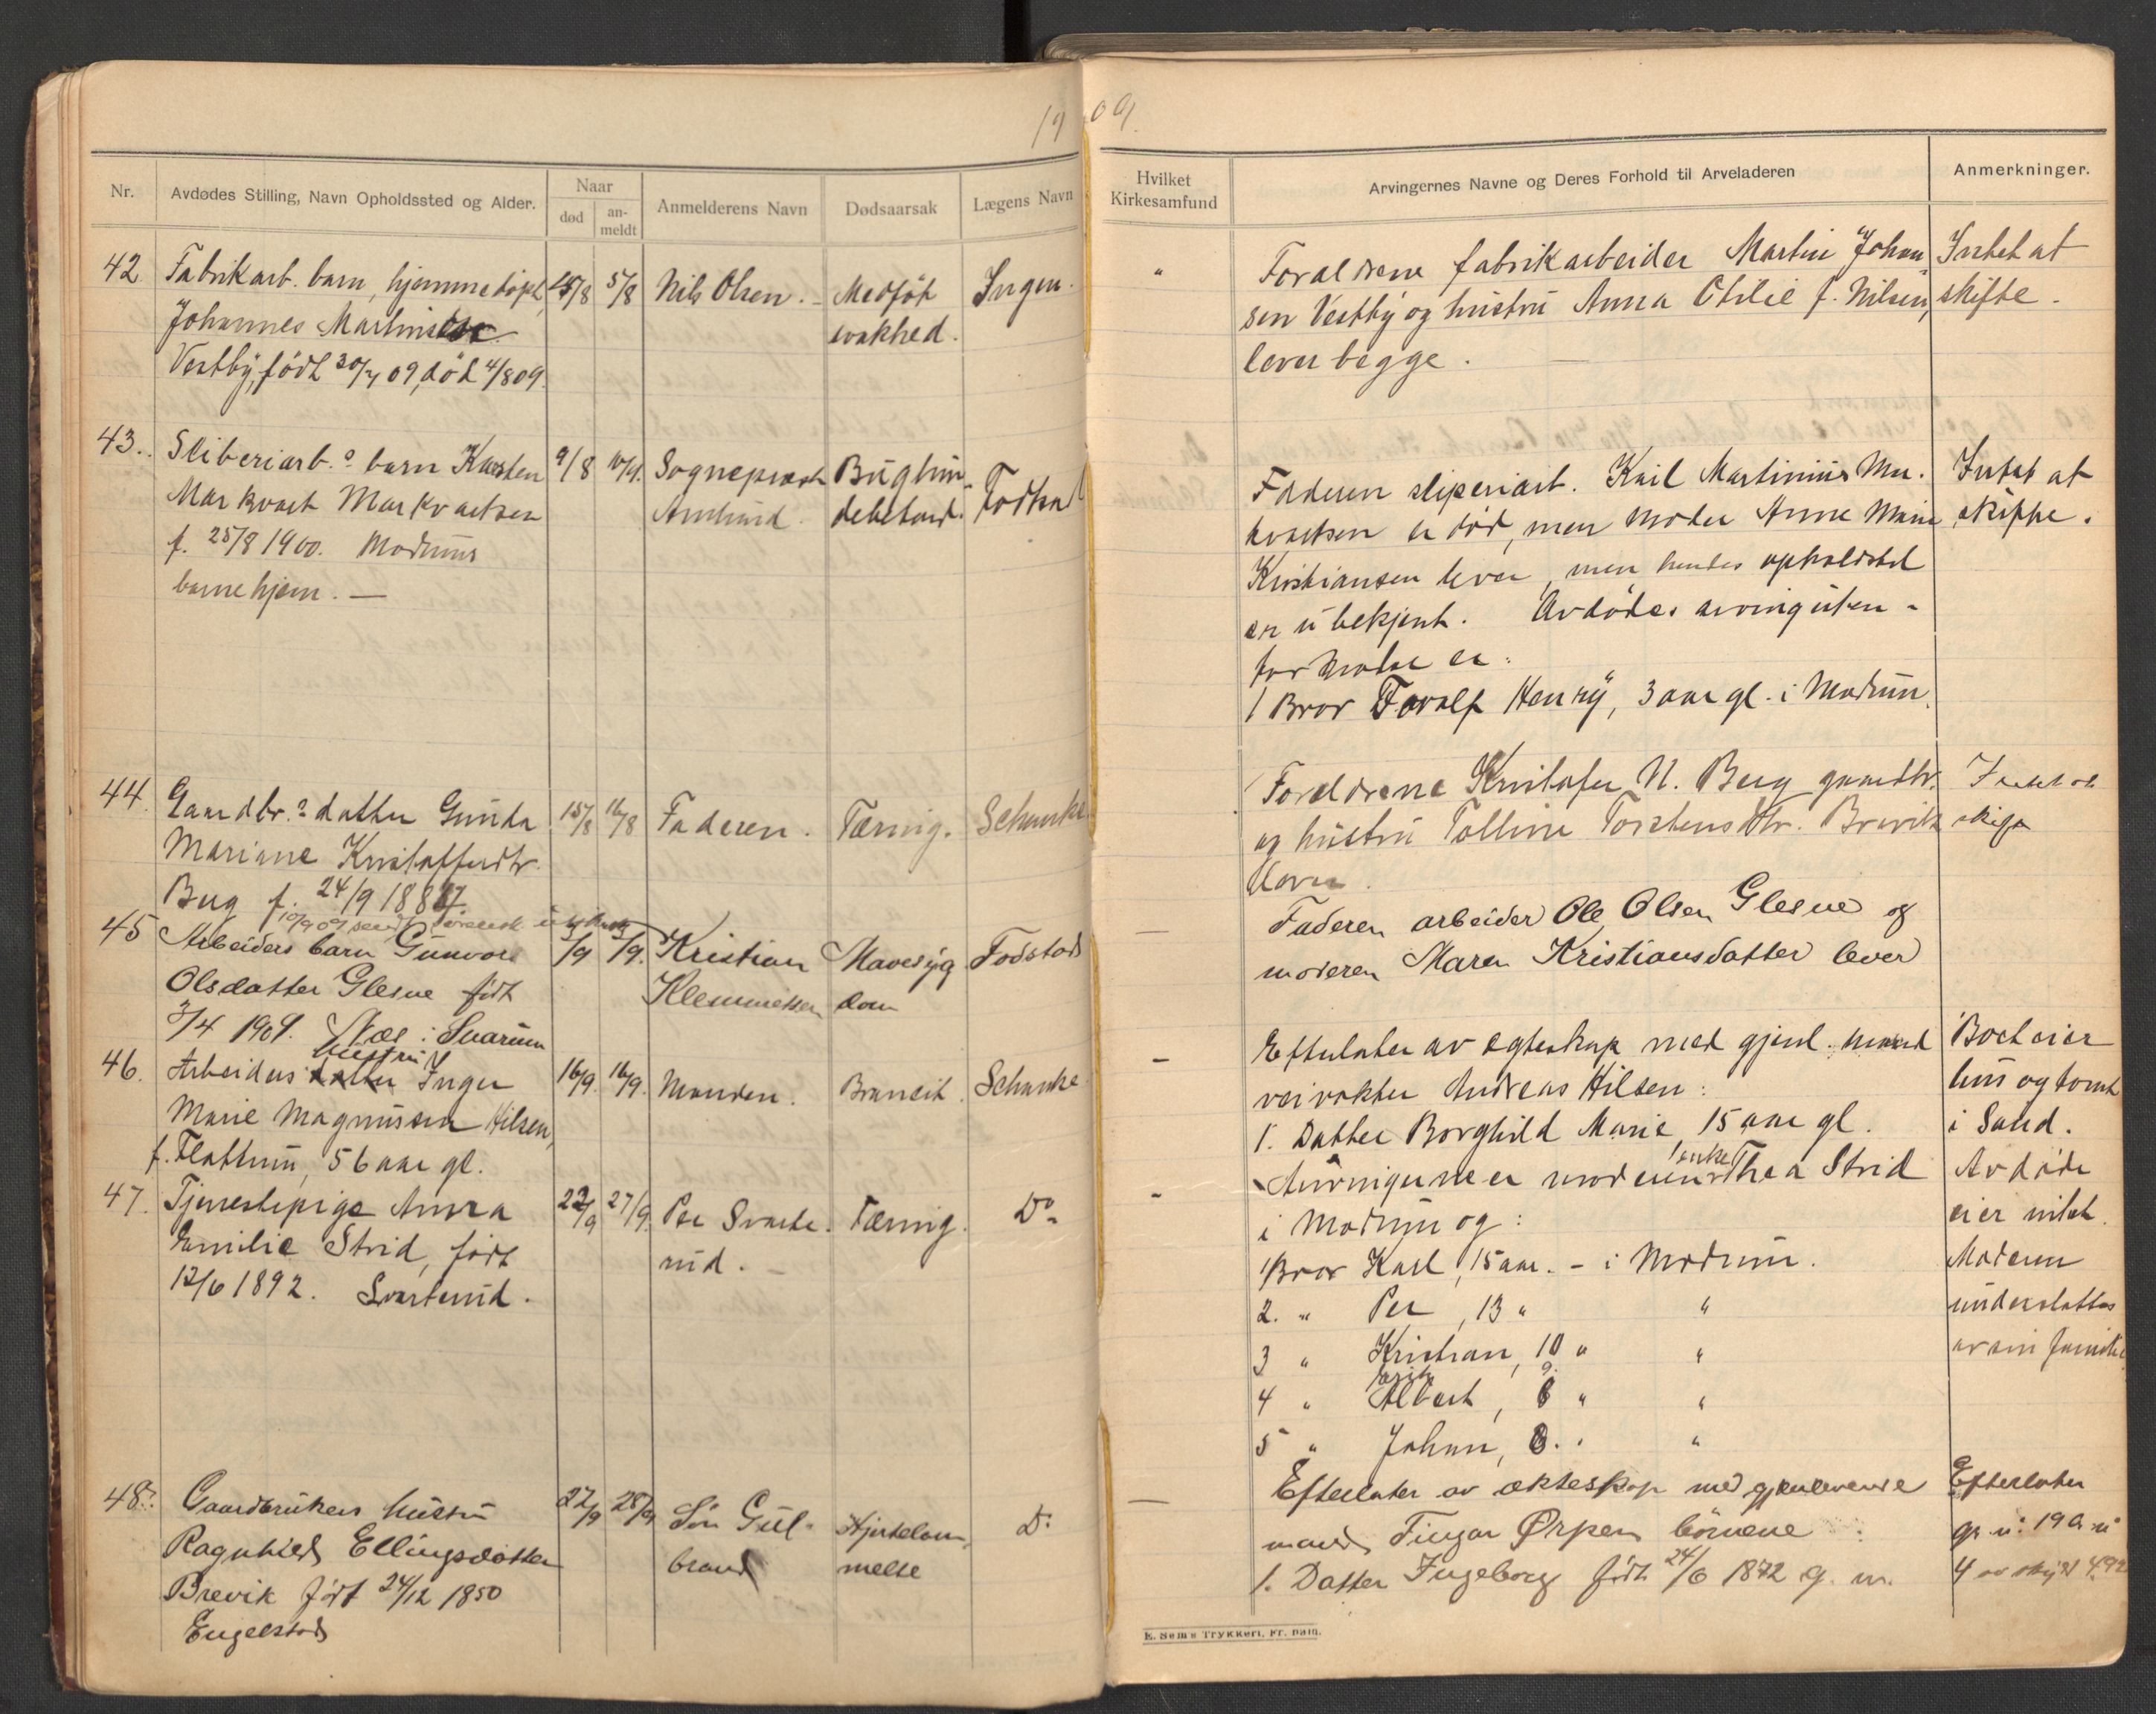 1909.
Nr.
Avdødes Stilling, Navn Opholdssted og Alder.
Naar
død
an-
meldt
Anmelderens Navn
Dødsaarsak
Lægens Navn
Hvilket
Kirkesamfund
Arvingernes Navne og Deres Forhold til Arveladeren
Anmerkninger.
42. Fabrikarb. barn, hjemmedøpt,
Johannes
Vestby, født 30/7 09, død 4/8 09.
5/8
Nils Olsen. –
Medfødt
svakhed.
Ingen.
"
Forældrene fabrikarbeider Martin Johan
sen Vestby og hustru Anna Otilie f. Nilsen,
lever begge. —
Intet at
skifte.
43. Sliberiarb.s barn Karsten
Markvart Markvartsen
f. 25/8 1900. Modums
barnehjem. —
9/8
10/9.
Sogneprest
Amlund.
Bughin-
debetænd.
Fodstad
Faderen sliperiarb. Karl Martinius Mar-
kvartsen er død, men moder Anne Marie
Kristiansen lever, men hendes opholdsted
er ubekjent. Avdødes arving uten-
for moder er:
1 Bror Torolf Henry, 3 aar gl. i Modum.
Intet at
skifte.
44. Gaardbr.s datter Gunda
Mariane Kristoffersdtr.
Berg f. 24/9 1887
15/8
16/8
Faderen.
Tæring.
Schanke
Foreldrene Kristofer N. Berg gaardbr.
og hustru Tolline Torstensdtr. Bravik
lever.
Intet at
skifte
10/9 09 sendt
45 Arbeiders barn Gunvor
Olsdatter Glesne født
3/4 1909. Næs i Snarum
5/9
7/9.
Kristian
Klemmetsen
Mavesyg
dom
Fodstad
—
Faderen arbeider Ole Olsen Glesne og
moderen Maren Kristiansdatter lever
46. Arbeiders hustru Inger
Marie Magnussen Hilsen,
f. Flattum, 56 aar gl.
16/9.
16/9.
Manden.
Brancit.
Schanke
–
Efterlater av egteskap med gjenl. mand
veivokter Andreas Hilsen:
1. Datter Borghild Marie, 15 aar gl.
Boet eier
hus og tomt
i Sand.
47. Tjenestepige Anna
Emilie Strid, født
12/6 1892. Svarterud.
22/9
27/9.
Per Svarte-
rud. –
Tæring.
Do
-
Arvingerne er moderen enke Thea Strid
i Modum og:
1 Bror Karl, 15 aar. – i Modum.
2. " Per, 13 " "
3 " Kristian, 10 " "
4 " Albert, " "
5 " Johan, 8. " "
Avdøde
eier intet.
Moderen
understøttes
av sin familie
48. Gaardbrukers hustru
Ragnhild Ellingsdatter
Brevik født 24/12 1850
Engelstad
27/9
28/9
Søn Gul-
brand
Hjertelam-
melse
Do
—
Efterlater av ekteskap med gjenlevende
mand Fingar Ørpen børnene:
1. Datter Ingeborg født 24/6 1872 g. m.
Efterlater
gr. n: 19 b. n
4 av skyld 4.92
E. Sem's Trykkeri, Fr.hald.